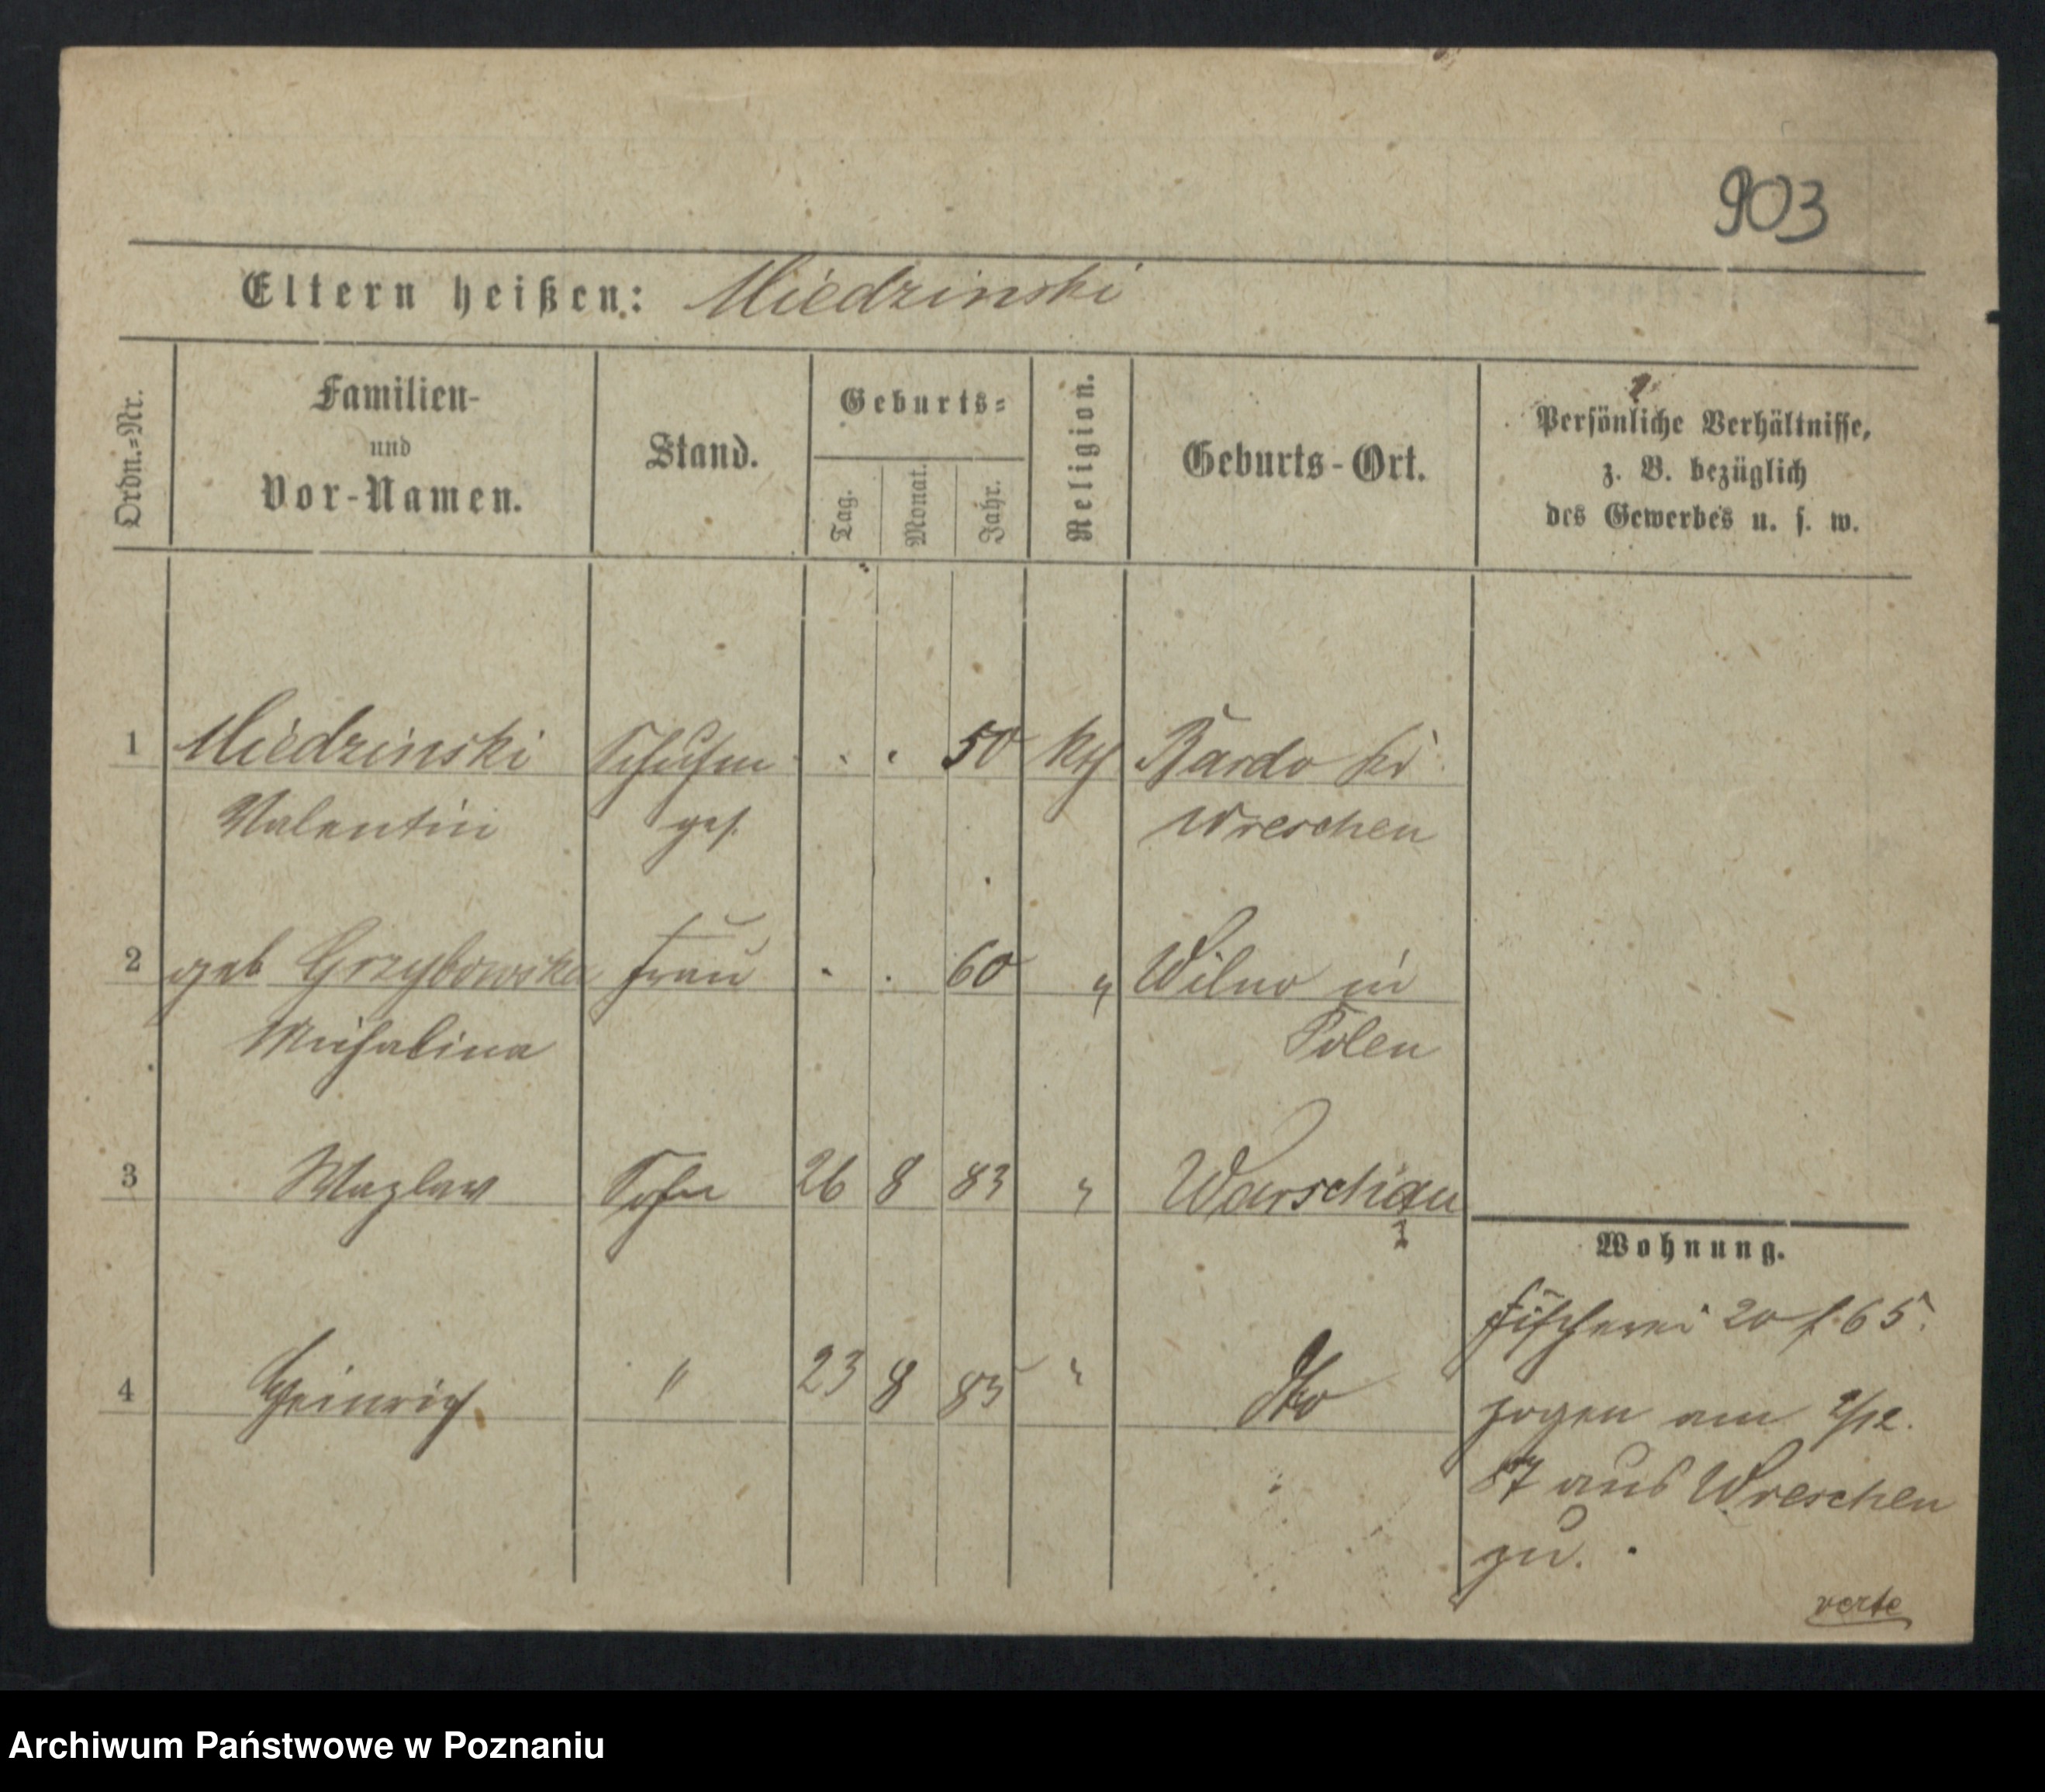 903
Eltern heißen: Miedzinski
Ordn.=Nr.
Familien-
und
Vor-Namen.
Stand.
Geburts=
Tag.
Monat.
Jahr.
Religion.
Geburts-Ort.
Persönliche Verhältnisse,
z. B. bezüglich
des Gewerbes u. s. w.
1 Miedzinski Schuhm . . 50 kth Bardo Kr
Valentin ges. Wreschen
2 geb Grzybowska Frau . . 60 " Wilno in
Michalina Polen
3 Wazlaw Sohn 26 8 83 " Warschau
4 Heinrich " 23 8 85 " dto
Wohnung.
Fischerei 20 f. 65.
zogen am 2/12.
87 aus Wreschen
zu.
verte
Archiwum Państwowe w Poznaniu